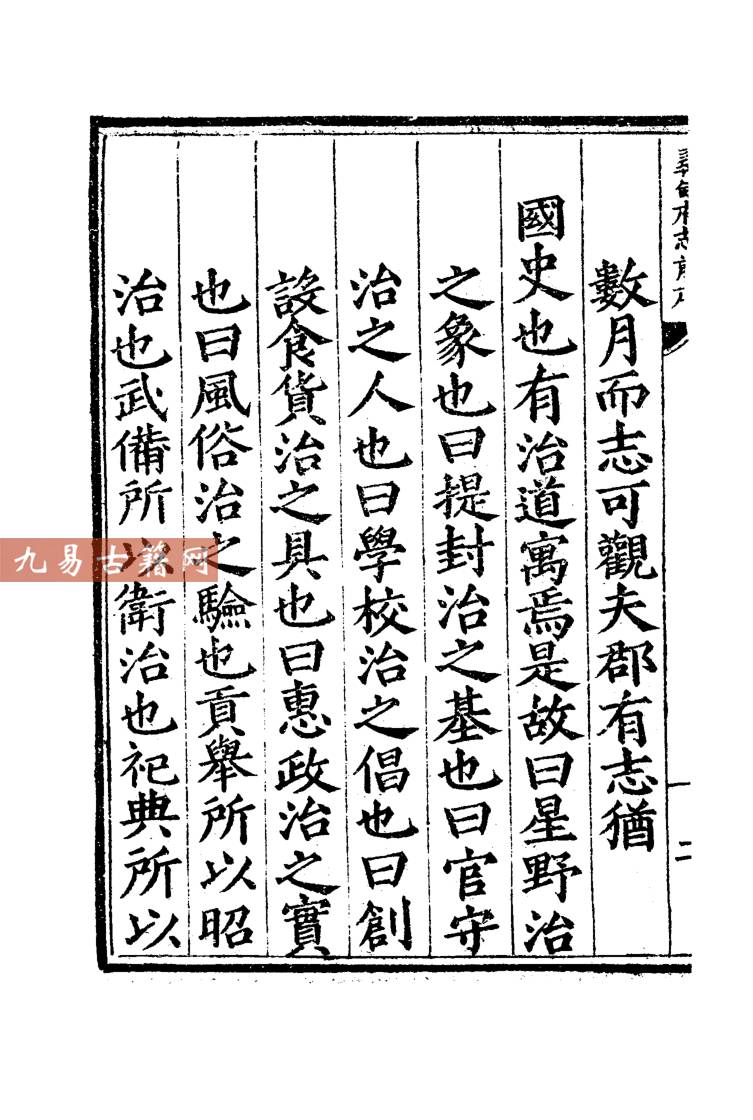 數月而志可觀夫郡有志猶
國史也有治道寓焉是故曰星野治
之象也曰提封治之基也曰官守
治之人也曰學校治之倡也曰創
設食貨治之具也曰惠政治之實
也曰風俗治之驗也貢舉所以昭
治也武備所以衛治也祀典所以
二
九易古籍网